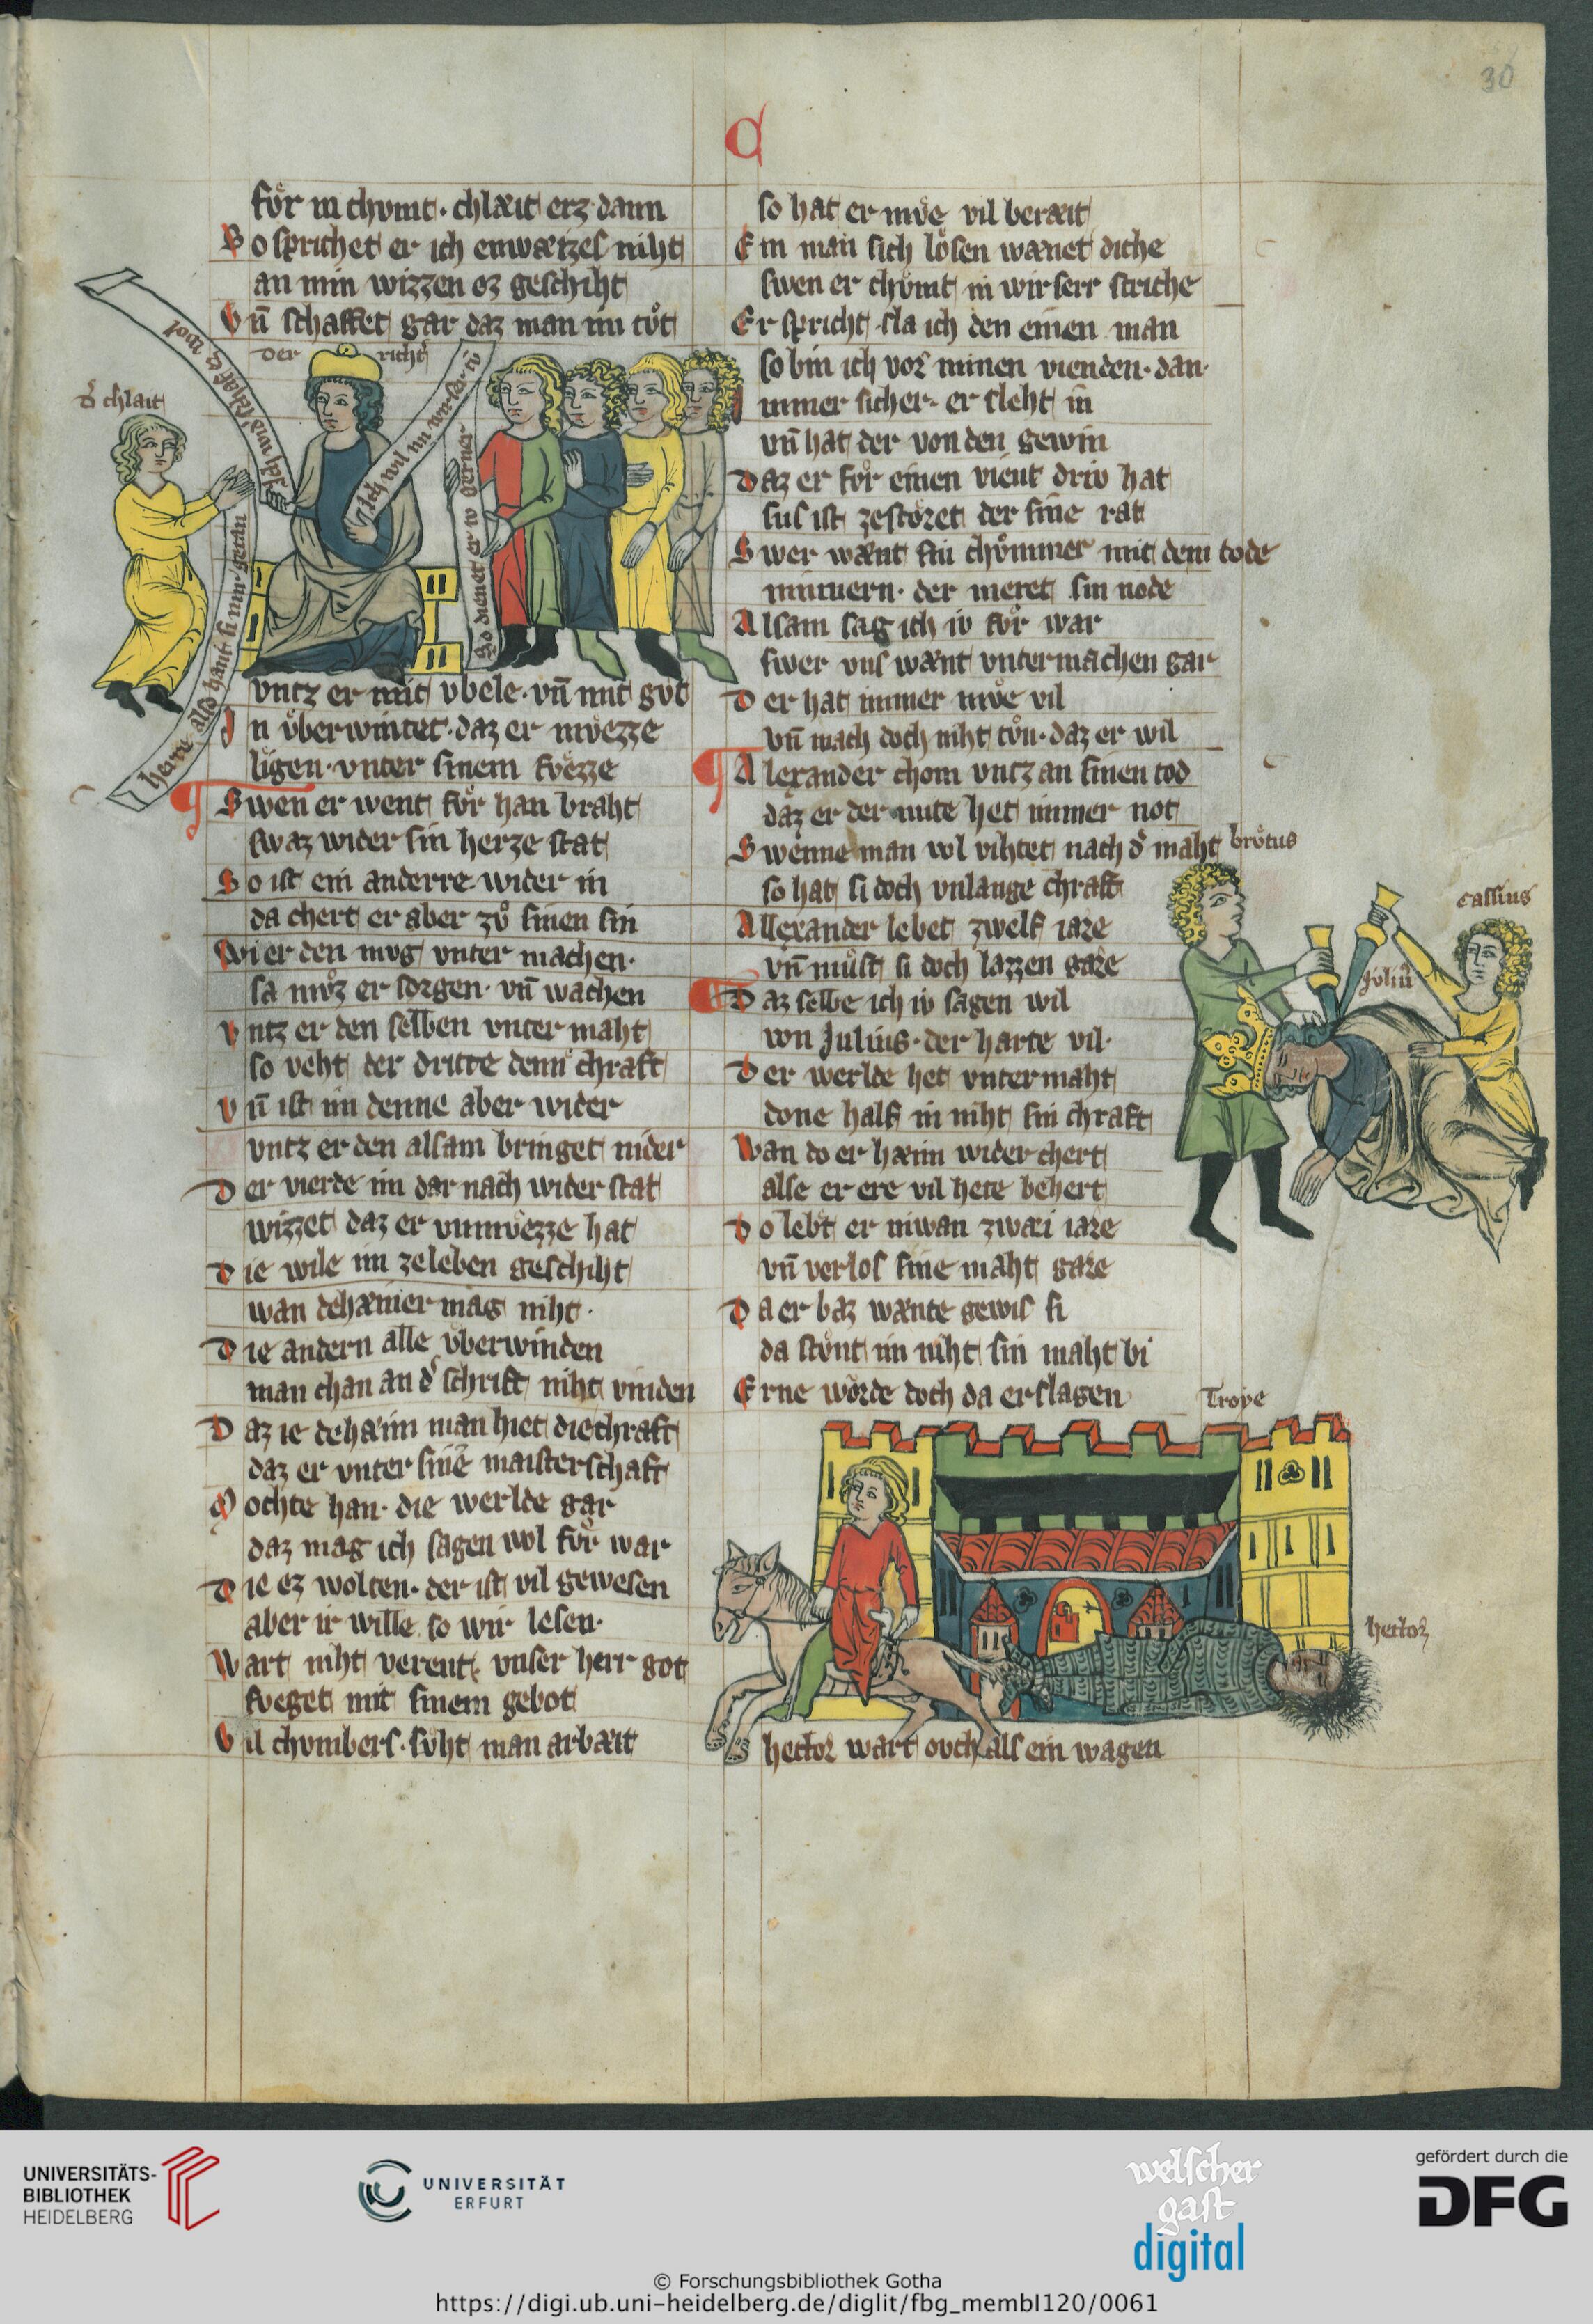 30
C
fůr in chvmt · chlæit erz dann
So sprichet er ich enwæizes niht
an min wizzen ez geschiht
Vn̄ schaffet gar daz man im tůt
der richt̾
d̾ chlait
Ich wil im wir ser
So dienet er iv gerner
herre also hant si mir getan
vntz er mit vbele · vn̄ mit gvt
In v̊berwintet · daz er mvezze
ligen · vnter sinem fvezze
¶ Swen er went fůr han braht
swaz wider sin herze stat
So ist ein anderre wider in
da chert er aber zv̊ sinen sin
Wi er den mvg vnter machen ·
sa mv̊z er sorgen · vn̄ wachen
Vntz er den selben vnter maht
so veht der dritte denn chraft
Vn̄ ist im denne aber wider
vntz er den alsam bringet nider
Der vierde im dar nach wider stat
wizzet daz er vnmvezze hat
Die wile im zeleben geschiht
wan dehænier mag niht ·
Die andern alle v̊berwinden
man chan an d̾ schrift niht vinden
Daz ie dehæim man hiet die chraft
daz er vnter sine maisterschaft
Mochte han · die werlde gar
daz mag ich sagen wol fv̊r war
Die ez wolten · der ist vil gewesen
aber ir wille so wir lesen ·
Wart niht verent · vnser herr got
fveget mit sinem gebot
Vil chvmbers · sv̊ht man arbæit
so hat er mve vil beræit
Ein man sich lősen wænet diche
swen er chv̊mt in wirserr striche
Er spricht sla ich den einen man
so bin ich vor minen vienden · dan ·
immer sicher · er sleht in
vn̄ hat der von den gewin
Daz er fv̊r einen vient driv hat
sus ist zestőret der sine rat
Swer wænt sin chv̊mmer mit dem tode
minnern · der meret sin node
Alsam sag ich iv fv̊r war
swer vns wænt vntermachen gar
Der hat immer mve vil
vn̄ mach doch niht tv̊n · daz er wil
¶ Alexander chom vntz an sinen tod
daz er der mite het immer not
Swenne man wol vihtet nach d̾ maht
so hat si doch vnlange chraft
Allexander lebet zwelf iare
vn̄ mv̊st si doch lazzen gare
¶ Daz selbe ich iv sagen wil
von Julius · der harte vil ·
Der werlde het vntermaht
done half in niht sin chraft
Wan do er hæim wider chert
alse er ere vil hete behert
Do lebt er niwan zwæi iare
vn̄ verlos sine maht gare
Da er baz wænte gewis si
da stv̊nt im niht sin maht bi
Erne wőrde doch da erslagen
brůtus
cassius
Juliu᷒
Troye
hector
hector wart ovch als ein wagen
UNIVERSITÄTS-
BIBLIOTHEK
HEIDELBERG
UNIVERSITÄT
ERFURT
welscher
gast
digital
gefördert durch die
DFG
© Forschungsbibliothek Gotha
https://digi.ub.uni-heidelberg.de/diglit/fbg_membI120/0061